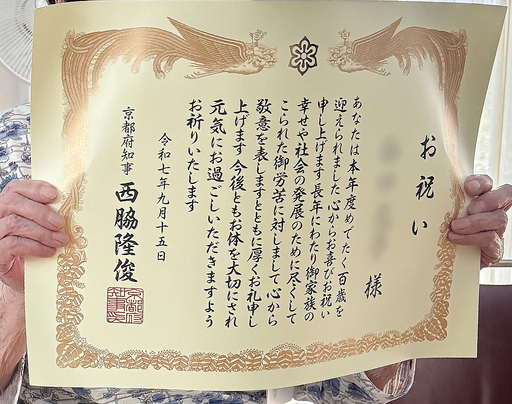 お祝い
様
あなたは本年度めでたく百歳を
迎えられました心からお喜びお祝い
申し上げます長年にわたり御家族の
幸せや社会の発展のために尽くして
こられた御労苦に対しまして心から
敬意を表しますとともに厚くお礼申し
上げます今後ともお体を大切にされ
元気にお過ごしいただきますよう
お祈りいたします
令和七年九月十五日
京都府知事 西脇隆俊